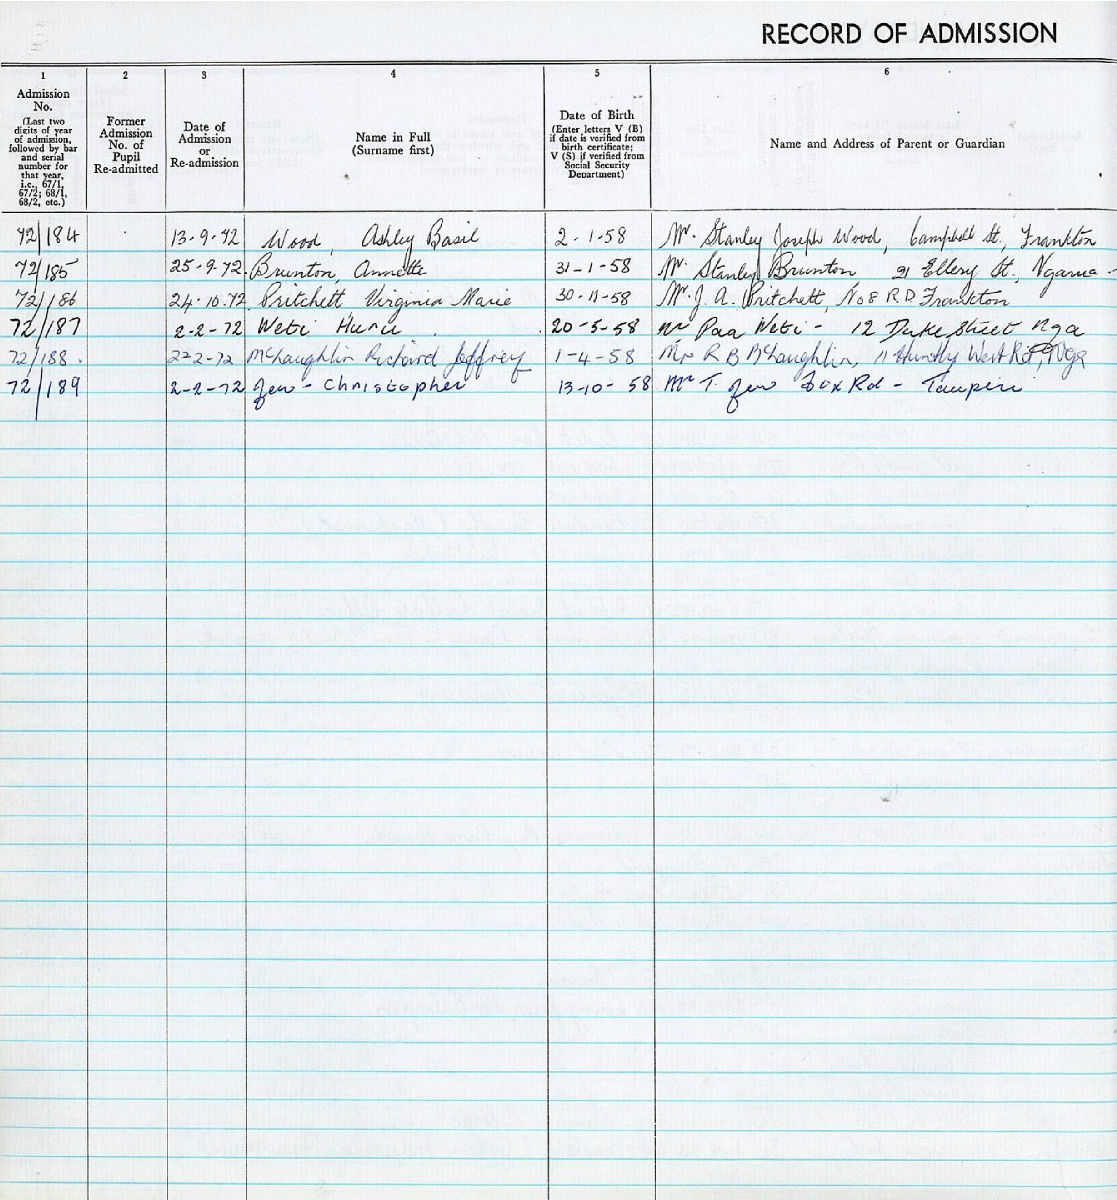 RECORD OF ADMISSION
1 2 3 4 5 6
Admission No. (Last two digits of year of admission, followed by bar and serial number for that year, i.e., 67/1, 67/2; 68/1, 68/2, etc.)
Former Admission No. of Pupil Re-admitted
Date of Admission or Re-admission
Name in Full (Surname first)
Date of Birth (Enter letters V (B) if date is verified from birth certificate; V (S) if verified from Social Security Department)
Name and Address of Parent or Guardian
72/184 13-9-72 Wood, Ashley Basil 2-1-58 Mr. Stanley Joseph Wood, Campbell St, Frankton
72/185 25-9-72 Brunton, Annette 31-1-58 Mr. Stanley Brunton 21 Ellery St. Ngarua-
72/186 24-10-72 Pritchett, Virginia Marie 30-11-58 Mr. J. A. Pritchett, No 8 R D Frankton
72/187 2-2-72 Weti Huru 20-5-58 Mr Paa Weti - 12 Duke Street Nga
72/188. 2-2-72 McLaughlin Richard Jeffrey 1-4-58 Mr R B McLaughlin, 11 Huntly West Rd, Nga
72/189 2-2-72 Christopher 13-10-58 Mr T. Rd - Taupiri